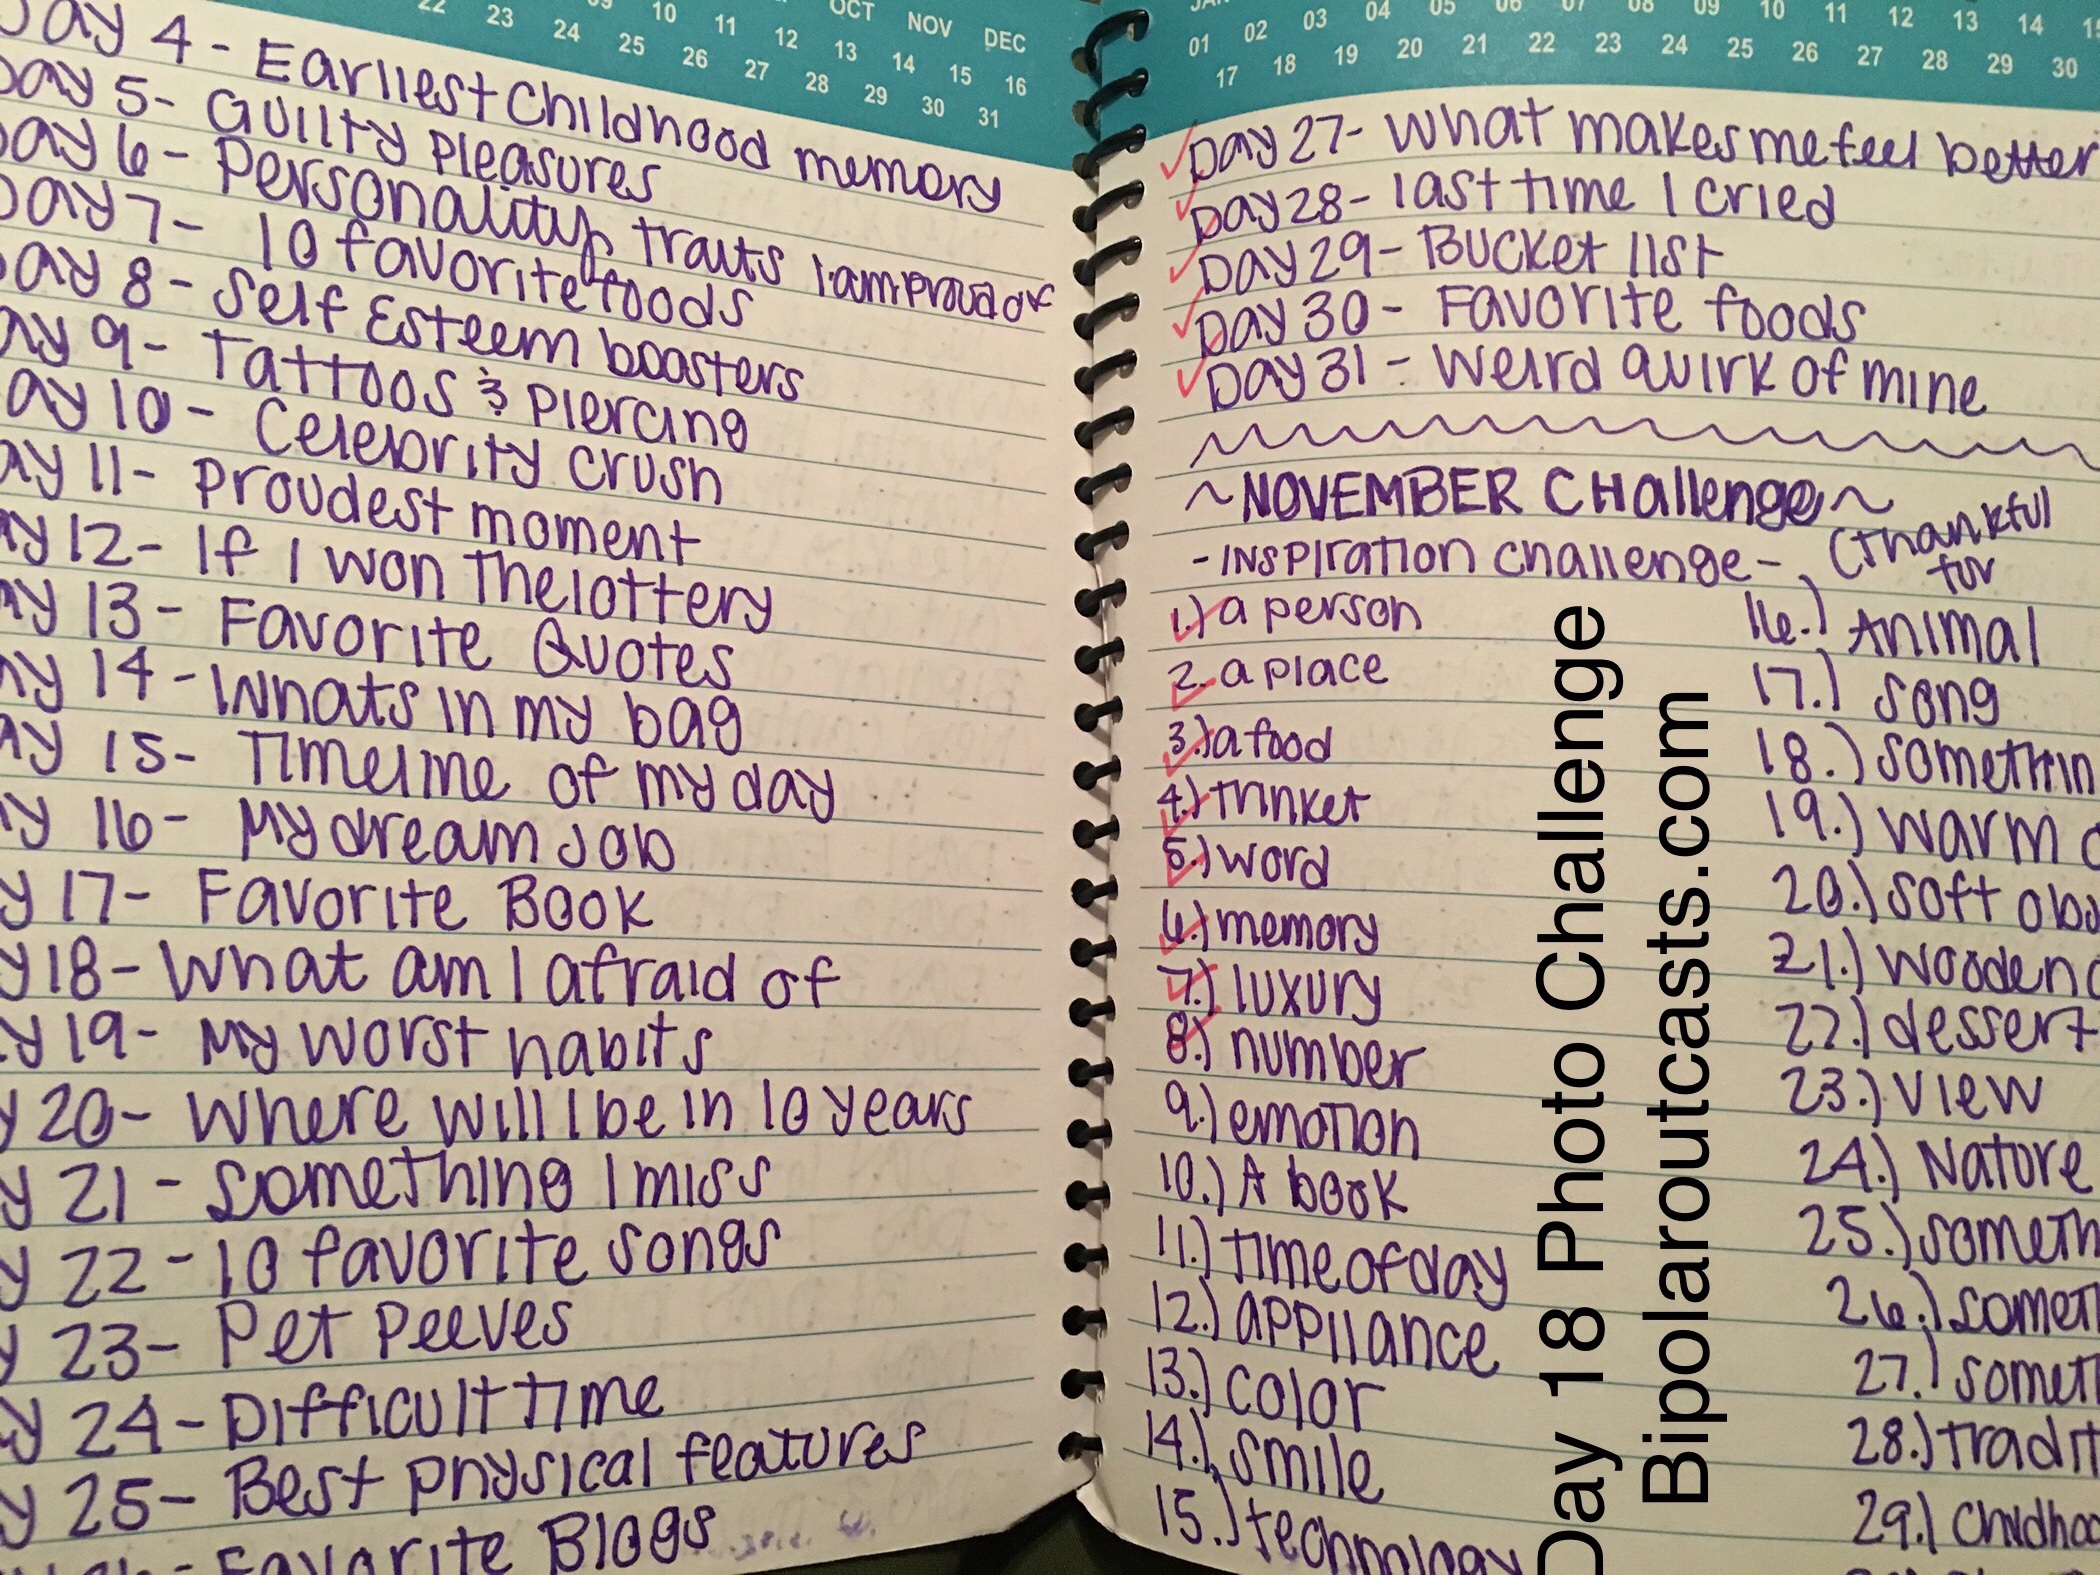 22 23 24 25 26 27 28 29 30 31
09 10 11 12 13 14 15 16
OCT NOV DEC
Day 4 - Earliest Childhood memory
Day 5- Guilty Pleasures
Day 6- Personality traits I am proud of
Day 7- 10 favorite foods
Day 8- Self Esteem boosters
ay 9- Tattoos & piercing
ay 10- Celebrity crush
ay 11- proudest moment
ay 12- If I won the lottery
ay 13- Favorite Quotes
ay 14- Whats in my bag
ay 15- Timeline of my day
y 16- My dream job
y 17- Favorite Book
y 18- What am I afraid of
y 19- My worst habits
y 20- Where will I be in 10 years
y 21- Something I miss
y 22- 10 favorite songs
y 23- Pet Peeves
y 24- Difficult time
y 25- Best physical features
Favorite Blogs
JAN
01 02 03 04 05 06 07 08 09 10 11 12 13 14 15
17 18 19 20 21 22 23 24 25 26 27 28 29 30
Day 27- What makes me feel better
Day 28- last time I cried
Day 29- Bucket list
Day 30- Favorite foods
Day 31- Weird quirk of mine
~NOVEMBER Challenge~
-INSPIRATION challenge- (Thankful for
1.) a person
2. a place
3.) a food
4.) trinket
5.) word
6.) memory
7.) luxury
8.) number
9.) emotion
10.) A book
11.) Time of day
12.) appliance
13.) color
14.) smile
15.) technology
16.) Animal
17.) song
18.) somethin
19.) warm o
20.) soft obj
21.) wooden o
22.) dessert
23.) view
24.) Nature
25.) someth
26.) somet
27.) somet
28.) tradit
29.) Childhoo
Day 18 Photo Challenge
Bipolaroutcasts.com